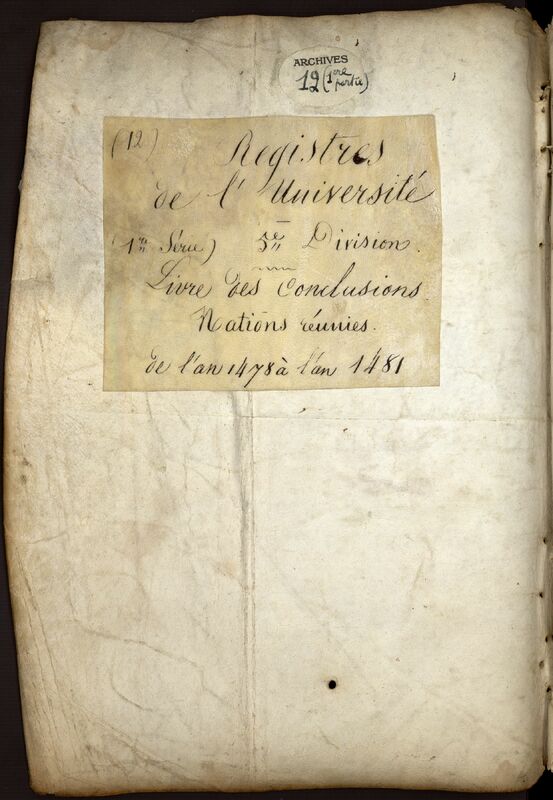 ARCHIVES
12 (1ere
partie)
(12) Registres
de l'Université
(1re Série) 5e Division.
Livre des Conclusions.
Nations réunies.
de l'an 1478 à l'an 1481